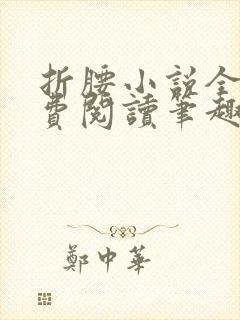 折腰小说全
費閱讀筆趣
鄭中華